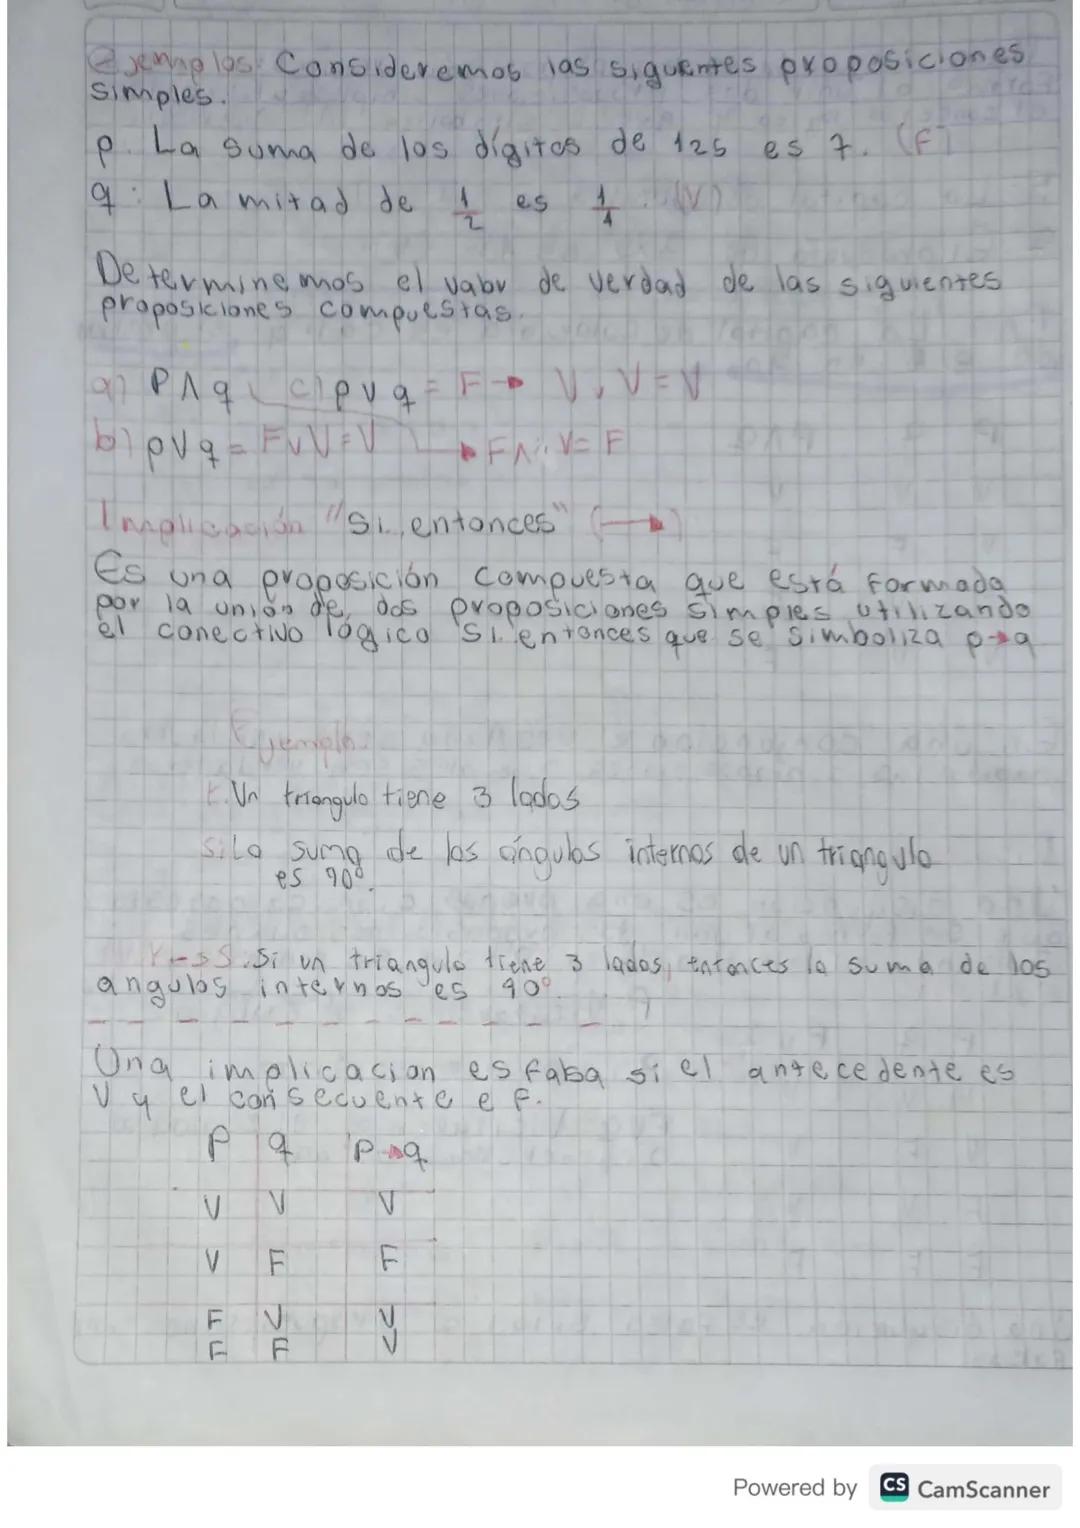 ejemplos: Consideremos las siguientes proposiciones
simples.
p. La suma de los dígitos de 125 es 7. (F)
q: La mitad de 1/2 es 1/4. (V)
Determinemos el valor de verdad de las siguientes
proposiciones compuestas.
a) P∧q c) p∨q = F → V, V = V
b) p∨q = F∨V = V → F∧ V = F
Implicación "Si.. entonces" (→)
Es una proposición compuesta que está formada
por la unión de dos proposiciones simples utilizando
el conectivo lógico Si.. entonces que se simboliza p→q
Ejemplo
r. Un triangulo tiene 3 lados
S: La suma de los ángulos internos de un triangulo
es 90°.
r→S. Si un triangulo tiene 3 lados, entonces la suma de los
angulos internos es 90°.
Una implicacion es falsa si el antecedente es
V y el consecuente e F.
P q P→q
V V V
V F F
F V V
F F V
Powered by CS CamScanner